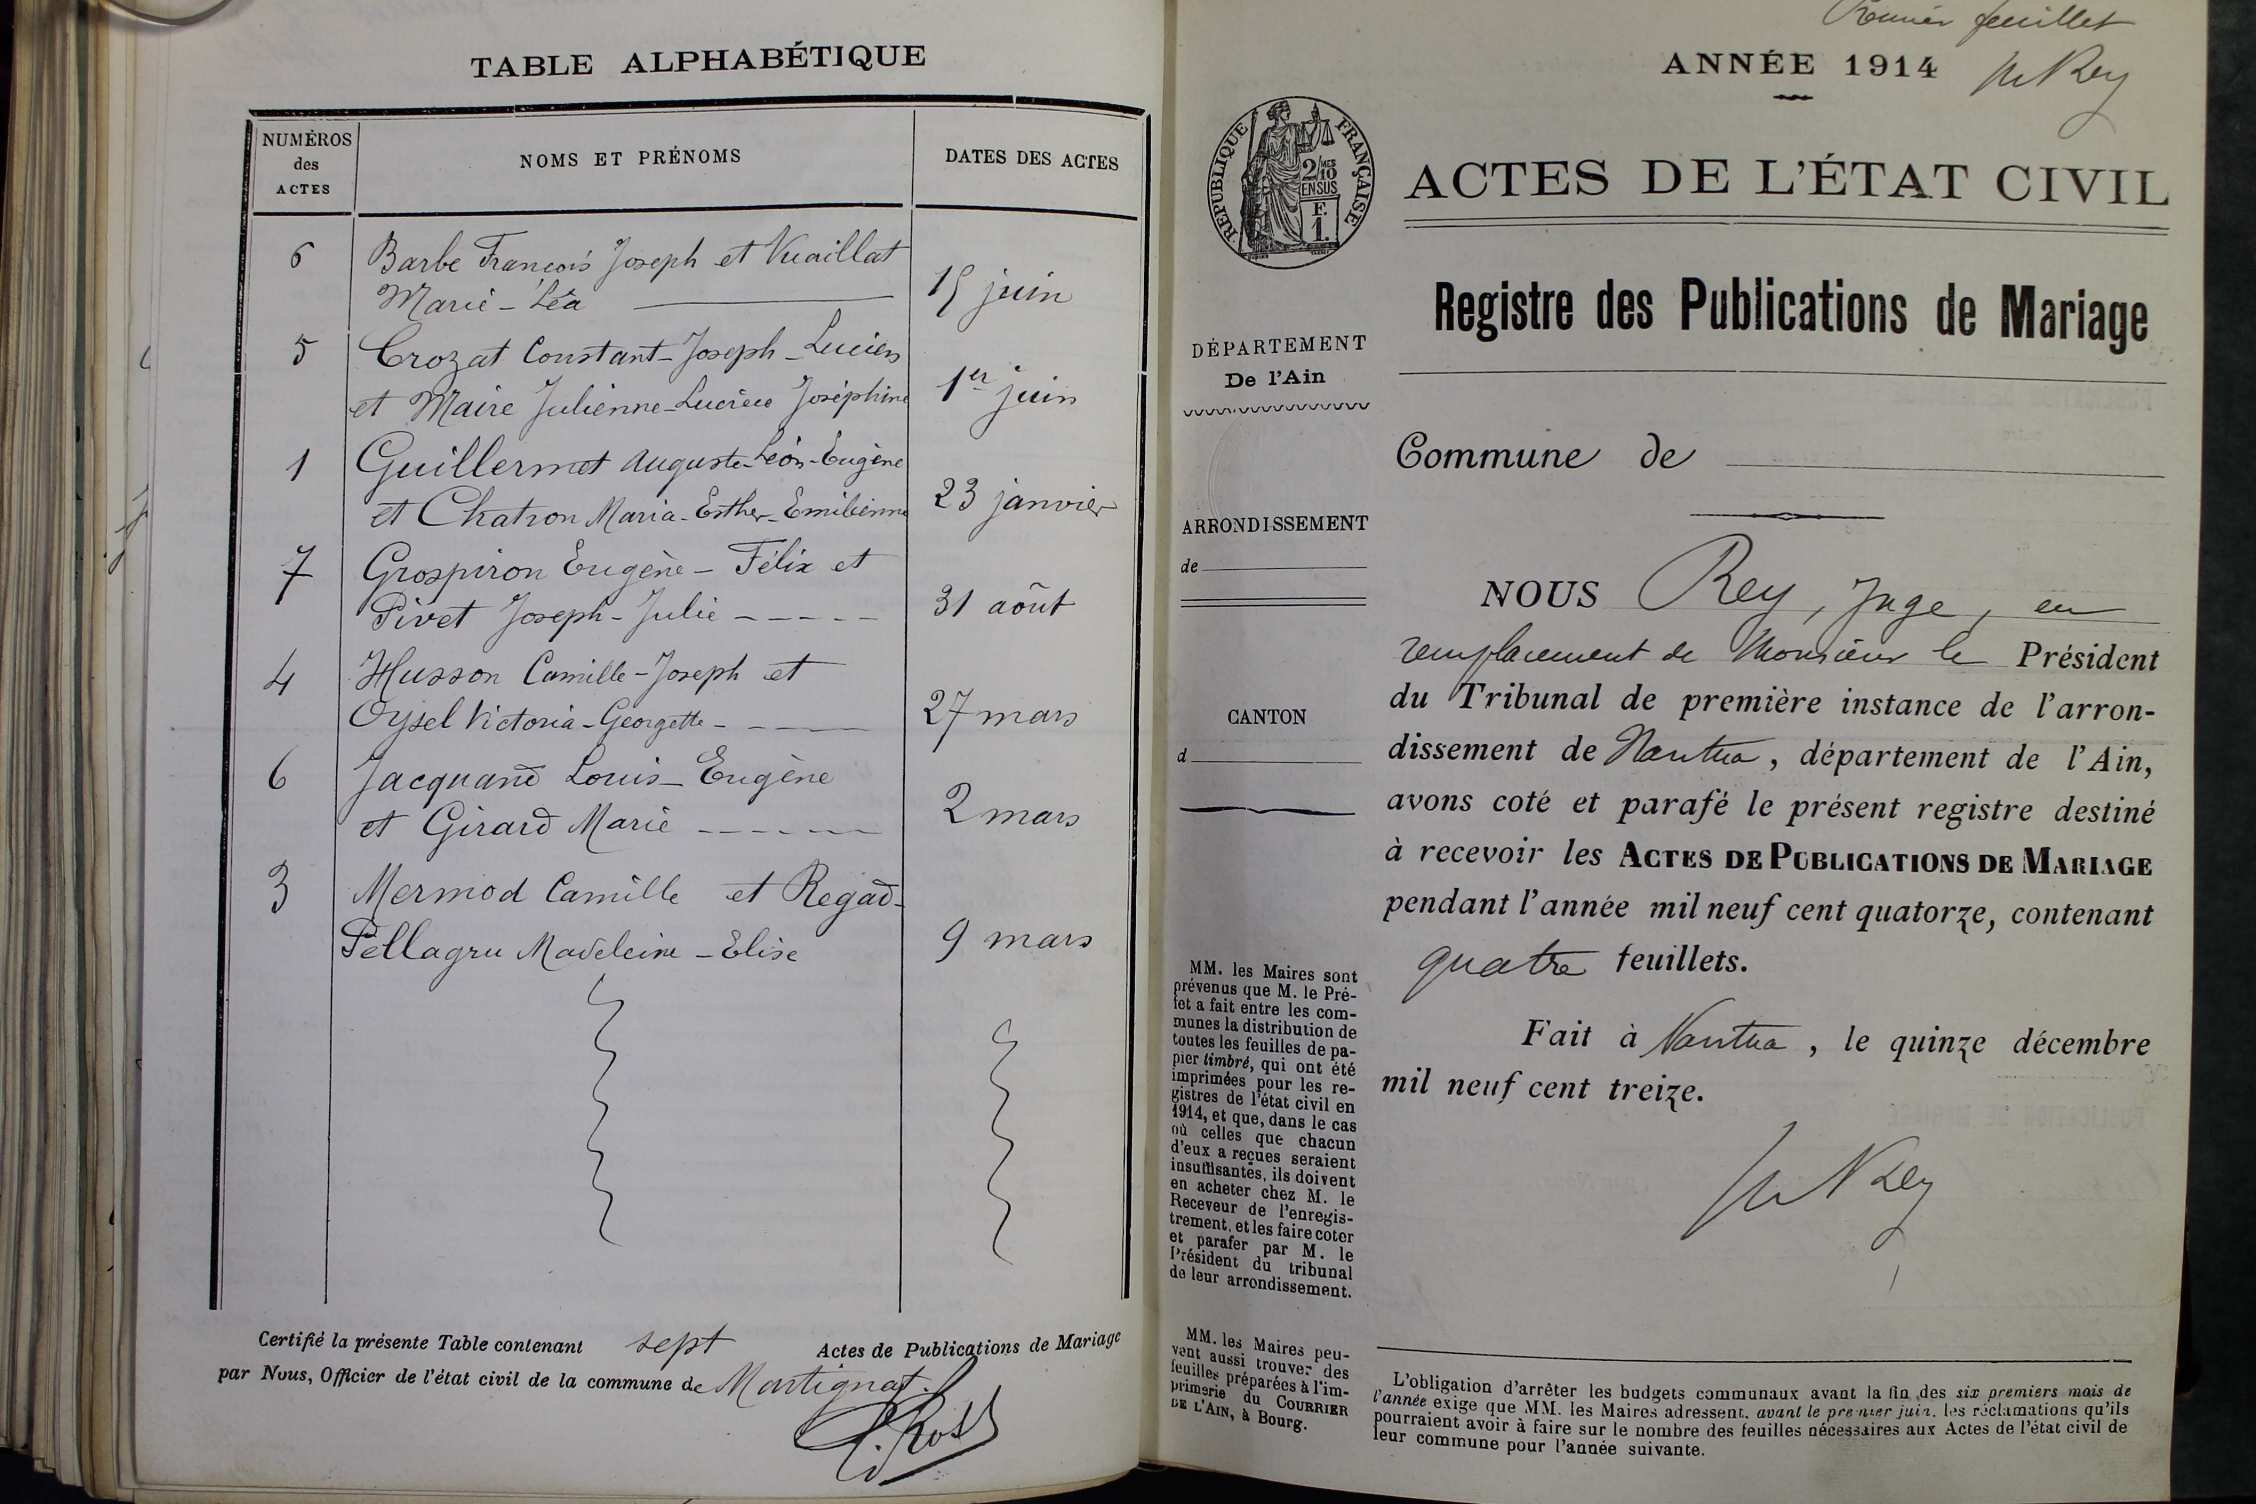 TABLE ALPHABÉTIQUE
NUMÉROS
des
ACTES
NOMS ET PRÉNOMS
DATES DES ACTES
6 Barbe François Joseph et Vuaillat
Marie-Léa
15 juin
5 Crozat Constant-Joseph-Lucien
et Maire Julienne-Lucrèce Joséphine
1er juin
1 Guillermet Auguste-Léon-Eugène
et Chatron Maria-Esther-Emilienne
23 janvier
7 Grospiron Eugène-Félix et
Pivet Joseph-Julie
31 août
4 Husson Camille-Joseph et
Oysel Victoria-Georgette
27 mars
6 Jacquand Louis-Eugène
et Girard Marie
2 mars
3 Mermod Camille et Regad-
Pellagru Madeleine-Elise
9 mars
Certifié la présente Table contenant sept Actes de Publications de Mariage
par Nous, Officier de l'état civil de la commune de Martignat.
Premier feuillet
ANNÉE 1914
Rey
RÉPUBLIQUE FRANÇAISE
2/10 MES
EN SUS
F.
1.
ACTES DE L'ÉTAT CIVIL
Registre des Publications de Mariage
DÉPARTEMENT
De l'Ain
ARRONDISSEMENT
de
CANTON
d
MM. les Maires sont
prévenus que M. le Pré-
fet a fait entre les com-
munes la distribution de
toutes les feuilles de pa-
pier timbré, qui ont été
imprimées pour les re-
gistres de l'état civil en
1914, et que, dans le cas
où celles que chacun
d'eux a reçues seraient
insuffisantes, ils doivent
en acheter chez M. le
Receveur de l'enregis-
trement, et les faire coter
et parafer par M. le
Président du tribunal
de leur arrondissement.
MM. les Maires peu-
vent aussi trouver des
feuilles préparées à l'im-
primerie du COURRIER
DE L'AIN, à Bourg.
Commune de
NOUS Rey, Juge, en
remplacement de Monsieur le Président
du Tribunal de première instance de l'arron-
dissement de Nantua, département de l'Ain,
avons coté et parafé le présent registre destiné
à recevoir les ACTES DE PUBLICATIONS DE MARIAGE
pendant l'année mil neuf cent quatorze, contenant
quatre feuillets.
Fait à Nantua, le quinze décembre
mil neuf cent treize.
Rey
L'obligation d'arrêter les budgets communaux avant la fin des six premiers mois de
l'année exige que MM. les Maires adressent, avant le premier juin, les réclamations qu'ils
pourraient avoir à faire sur le nombre des feuilles nécessaires aux Actes de l'état civil de
leur commune pour l'année suivante.